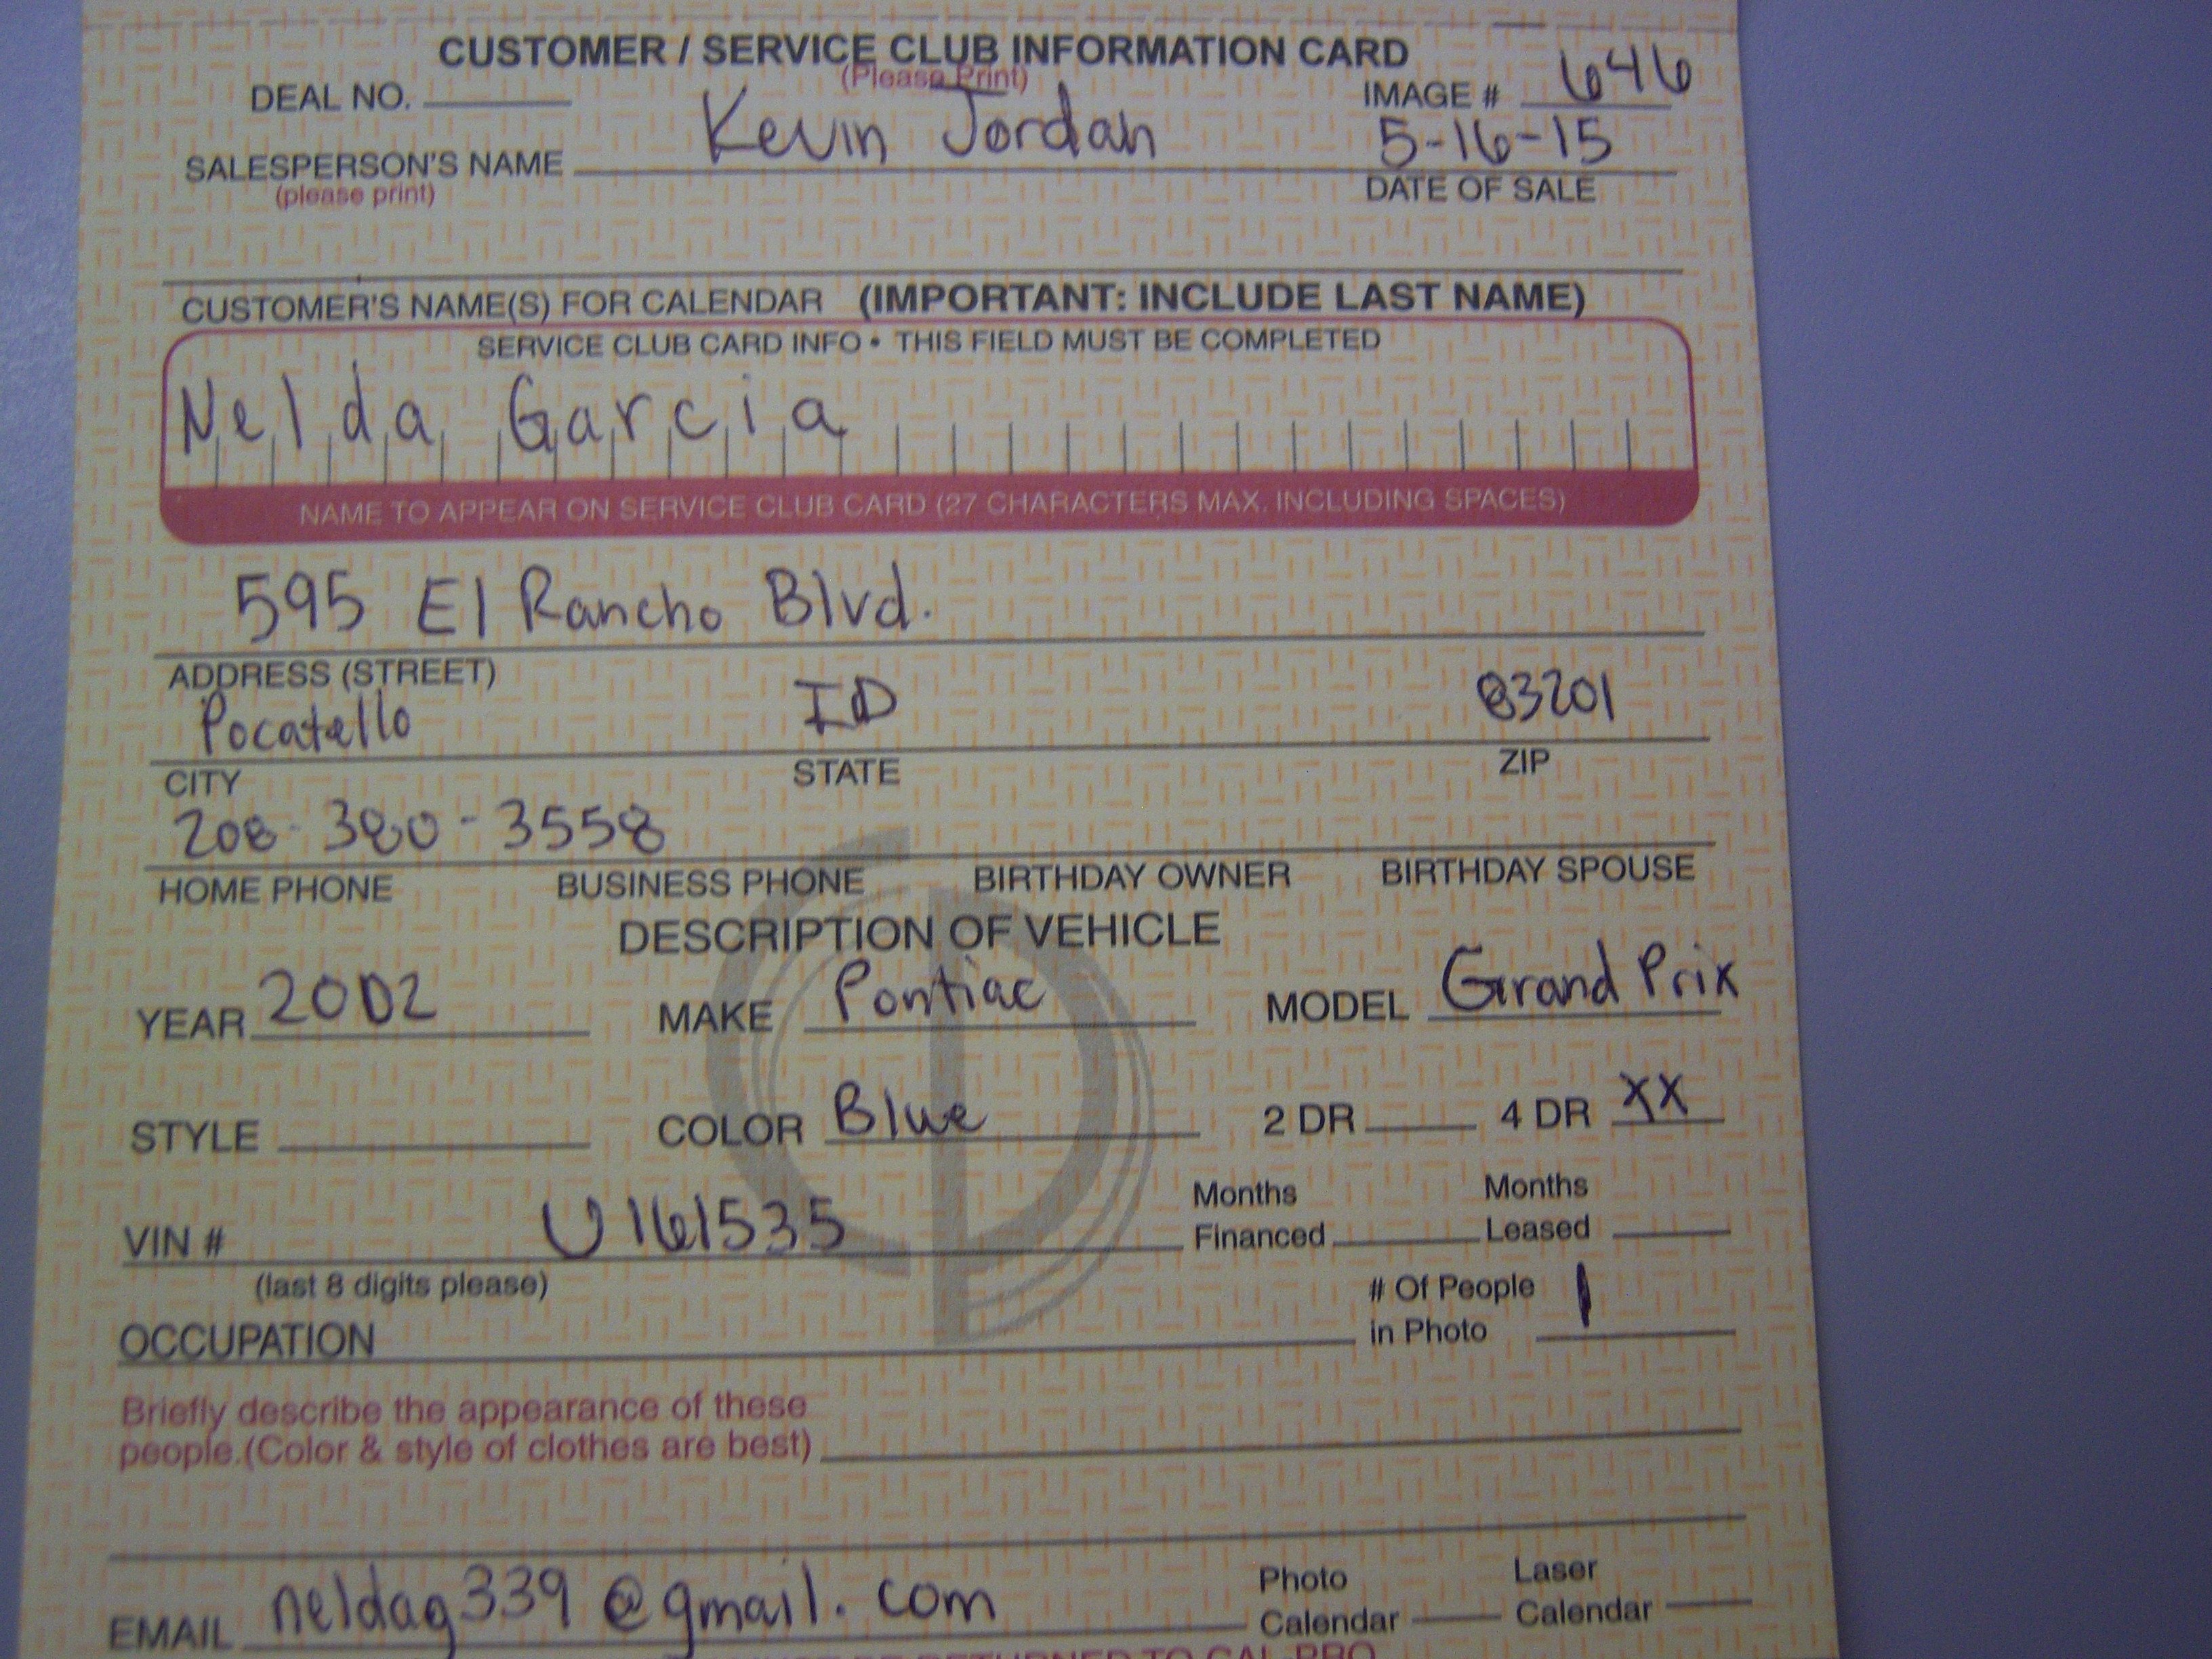 CUSTOMER / SERVICE CLUB INFORMATION CARD
(Please Print)
DEAL NO. IMAGE # 646
SALESPERSON'S NAME Kevin Jordan 5-16-15
(please print) DATE OF SALE
CUSTOMER'S NAME(S) FOR CALENDAR (IMPORTANT: INCLUDE LAST NAME)
SERVICE CLUB CARD INFO • THIS FIELD MUST BE COMPLETED
Nelda Garcia
NAME TO APPEAR ON SERVICE CLUB CARD (27 CHARACTERS MAX. INCLUDING SPACES)
595 El Rancho Blvd.
ADDRESS (STREET)
Pocatello ID 83201
CITY STATE ZIP
208-380-3558
HOME PHONE BUSINESS PHONE BIRTHDAY OWNER BIRTHDAY SPOUSE
DESCRIPTION OF VEHICLE
YEAR 2002 MAKE Pontiac MODEL Grand Prix
STYLE COLOR Blue 2 DR 4 DR XX
VIN # U161535 Months Financed Months Leased
(last 8 digits please)
OCCUPATION # Of People in Photo 1
Briefly describe the appearance of these
people.(Color & style of clothes are best)
EMAIL neldag339@gmail.com Photo Calendar Laser Calendar
RETURNED TO CAL-PRO